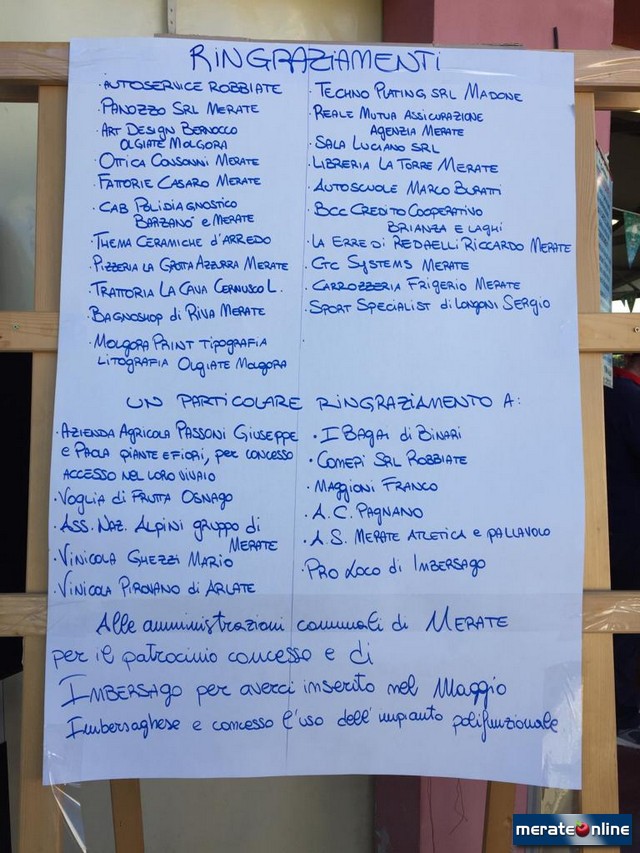 RINGRAZIAMENTI
· AUTOSERVICE ROBBIATE
· PANOZZO SRL MERATE
· ART DESIGN BERNOCCO
OLGIATE MOLGORA
· OTTICA CONSONNI MERATE
· FATTORIE CASARO MERATE
· CAB POLIDIAGNOSTICO
BARZANO' e MERATE
· THEMA CERAMICHE d'ARREDO
· PIZZERIA LA GROTTA AZZURRA MERATE
· TRATTORIA LA CAVA CERNUSCO L.
· BAGNOSHOP di RIVA MERATE
· MOLGORA PRINT TIPOGRAFIA
LITOGRAFIA OLGIATE MOLGORA
· TECHNO PLATING SRL MADONE
· REALE MUTUA ASSICURAZIONE
AGENZIA MERATE
· SALA LUCIANO SRL
· LIBRERIA LA TORRE MERATE
· AUTOSCUOLE MARCO BURATTI
· BCC CREDITO COOPERATIVO
BRIANZA E LAGHI
· LA ERRE DI REDAELLI RICCARDO MERATE
· CTC SYSTEMS MERATE
· CARROZZERIA FRIGERIO MERATE
· SPORT SPECIALIST di LONGONI SERGIO
UN PARTICOLARE RINGRAZIAMENTO A:
· AZIENDA AGRICOLA PASSONI GIUSEPPE
e PAOLA PIANTE E FIORI, per CONCESSO
ACCESSO NEL LORO VIVAIO
· VOGLIA di FRUTTA OSNAGO
· ASS. NAZ. ALPINI gruppo di
MERATE
· VINICOLA GHEZZI MARIO
· VINICOLA PIROVANO di ARLATE
· I BAGAI di BINARI
· COMEPI SRL ROBBIATE
· MAGGIONI FRANCO
· A.C. PAGNANO
· A.S. MERATE ATLETICA e PALLAVOLO
· PRO LOCO di IMBERSAGO
Alle amministrazioni comunali di MERATE
per il patrocinio concesso e di
IMBERSAGO per averci inserito nel Maggio
Imbersaghese e concesso l'uso dell'impianto polifunzionale
merateonline